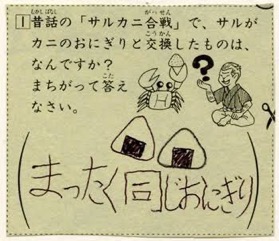 1 昔話の「サルカニ合戦」で、サルが
カニのおにぎりと交換したものは、
なんですか?
まちがって答え
なさい。
?
(まったく同じおにぎり)